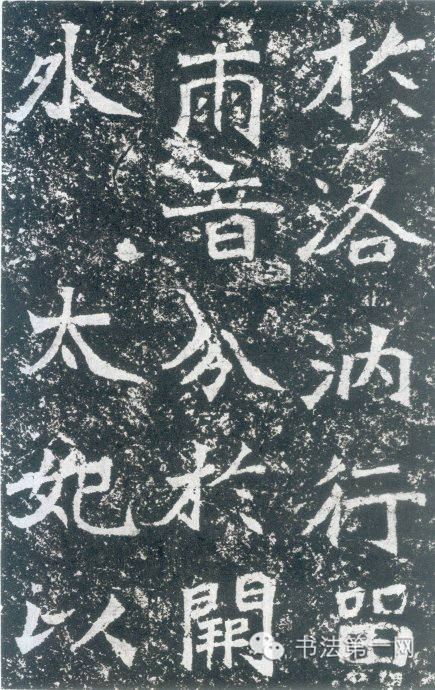 於洛汭行留
兩音分於闕
外太妃以
书法第一网